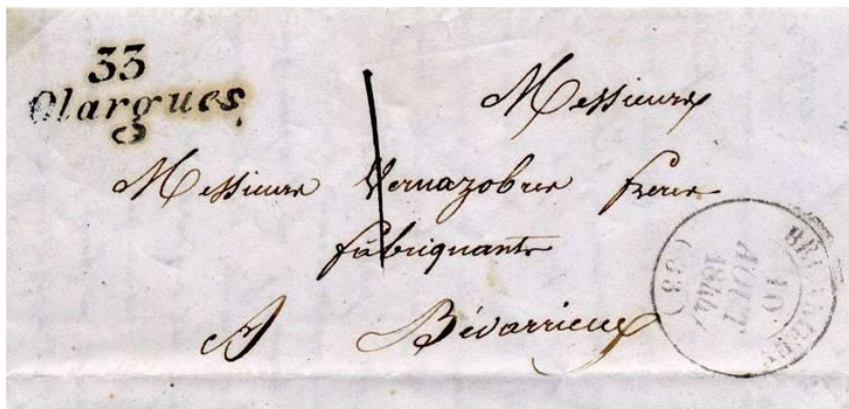 33
Olargues
Messieurs
Messieurs Vernazobres frères
fabriquants
A Bédarrieux
BÉDARIEUX
10
AOUT
1844
(33)